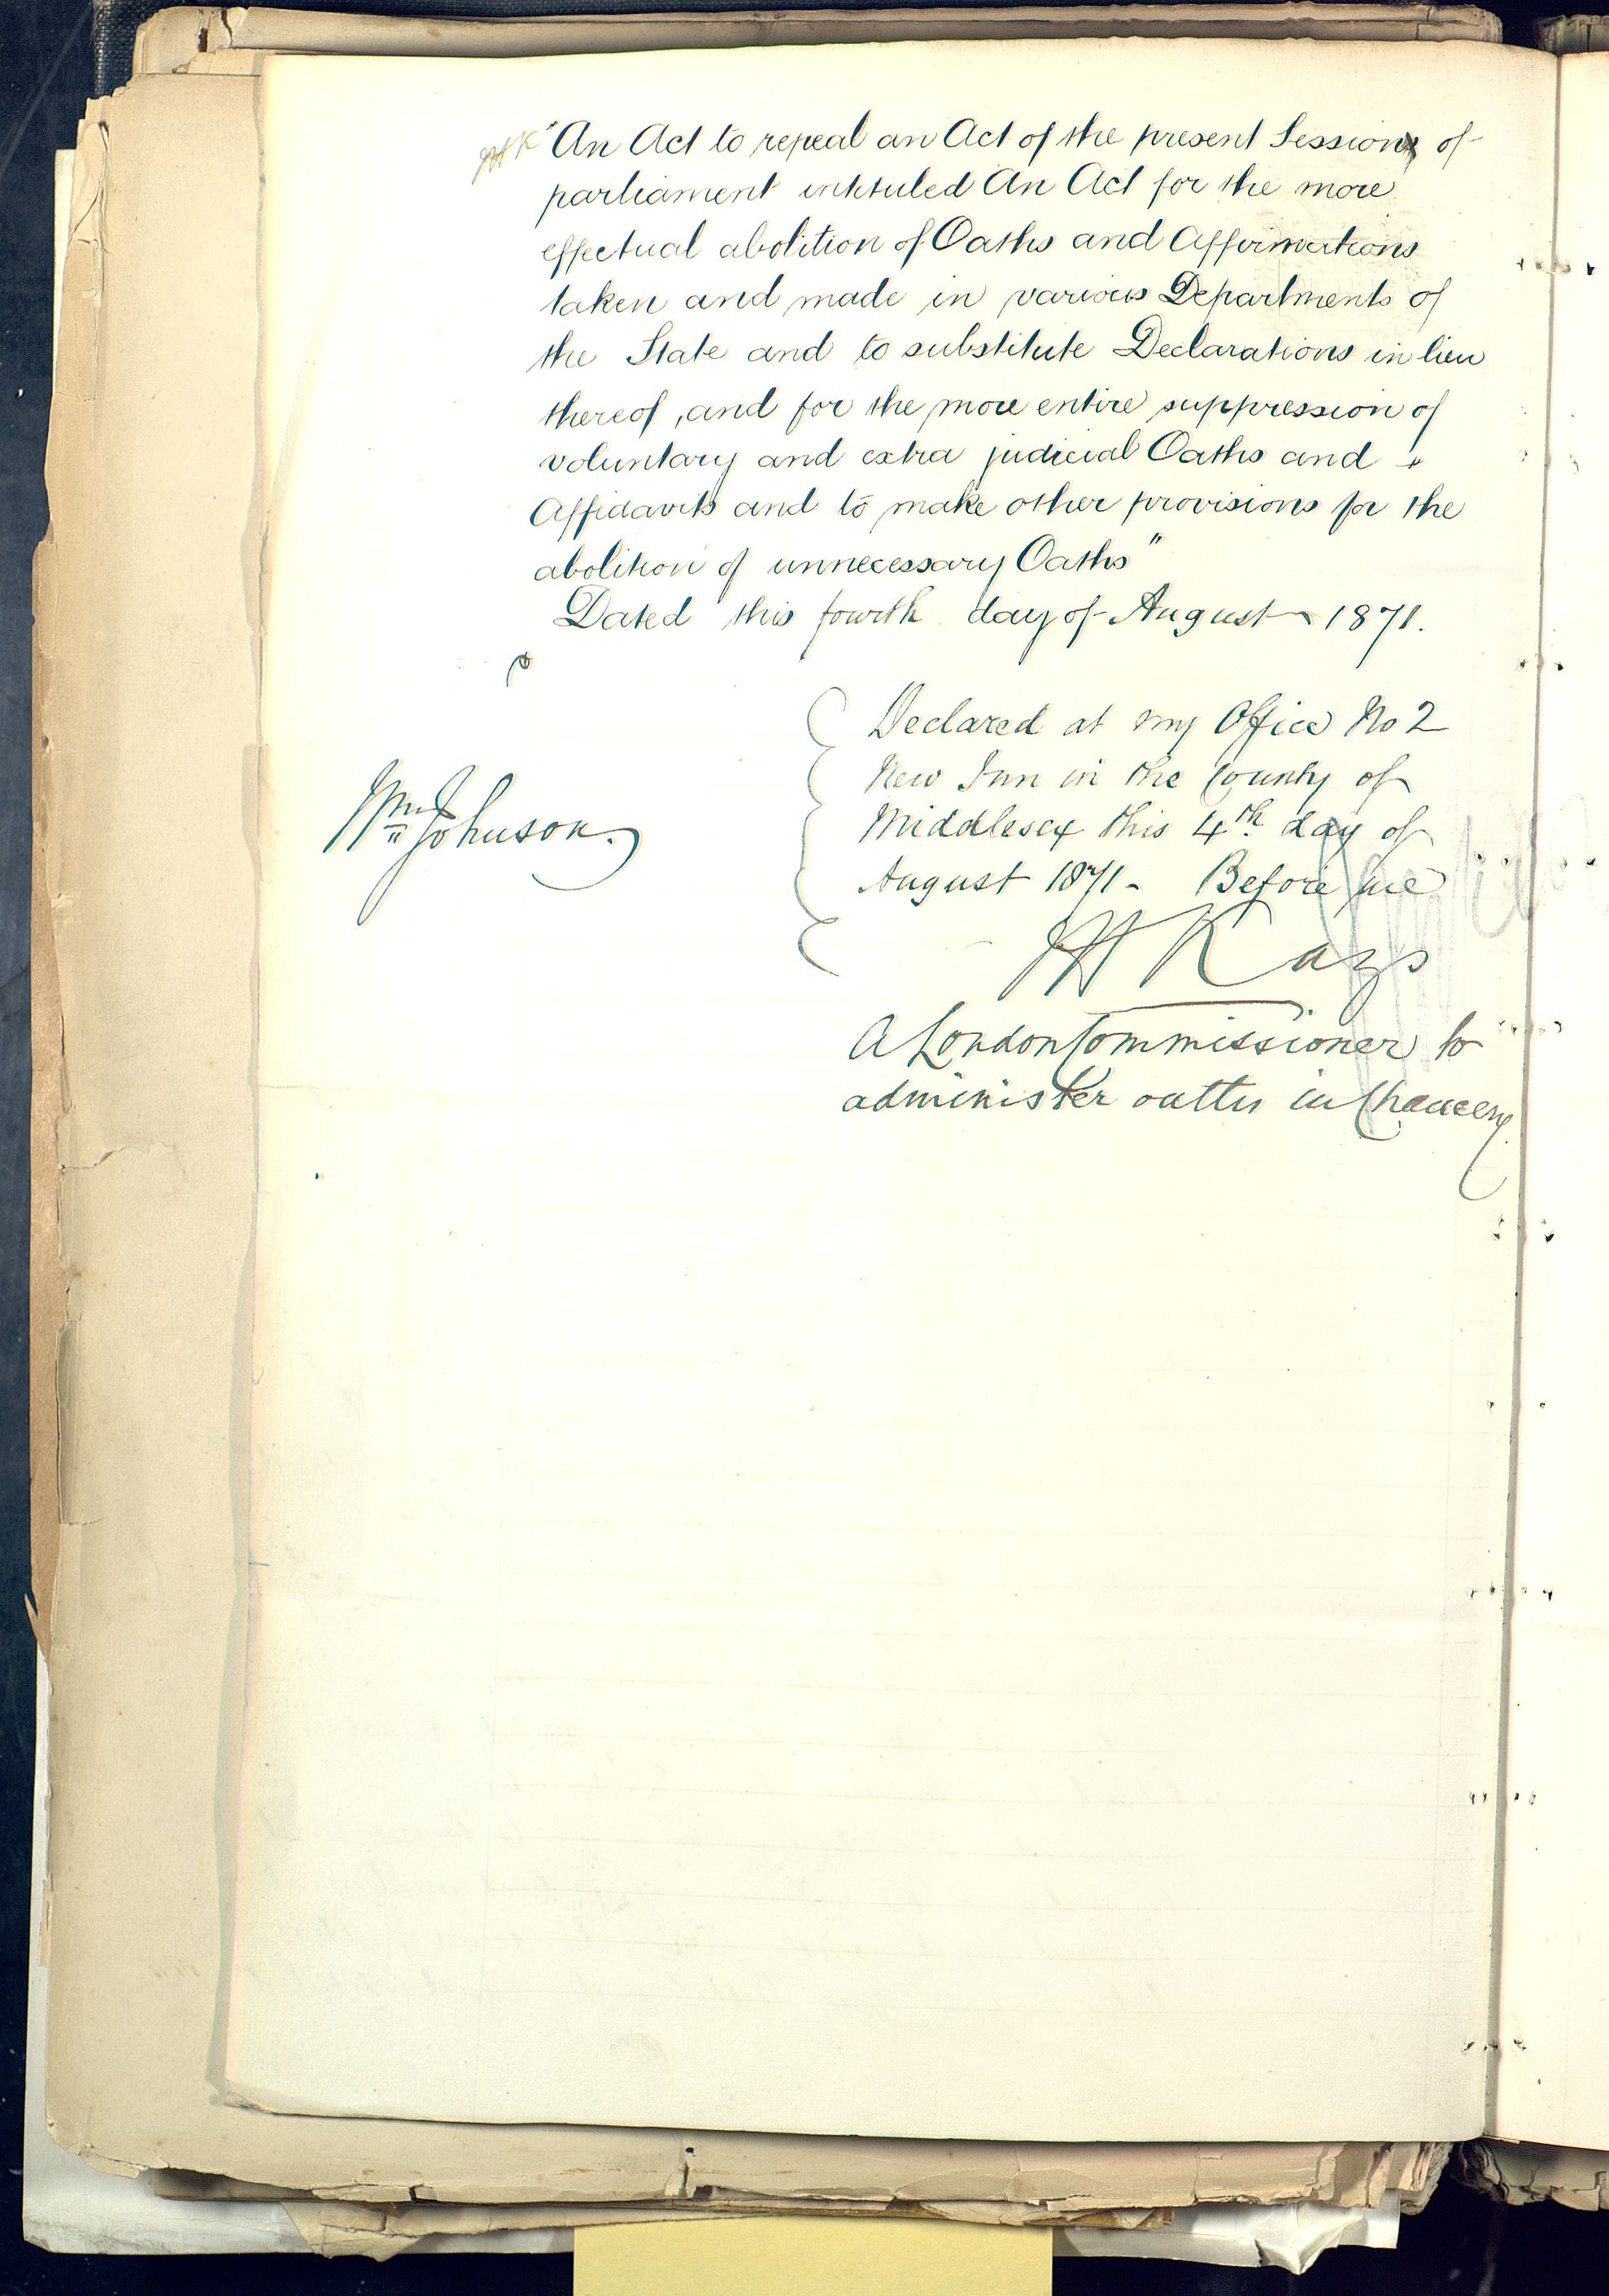 "An Act to repeal an Act of the present Session of
parliament intituled An Act for the more
effectual abolition of Oaths and Affirmations
taken and made in various Departments of
the State and to substitute Declarations in lieu
thereof, and for the more entire suppression of
voluntary and extra judicial Oaths and
Affidavits and to make other provisions for the
abolition of unnecessary Oaths"
Dated this fourth day of August 1871.
Declared at my Office No 2
New Inn in the County of
Middlesex this 4th day of
August 1871 - Before me
Wm Johnson.
Kays
A London Commissioner to
administer oaths in Chancery